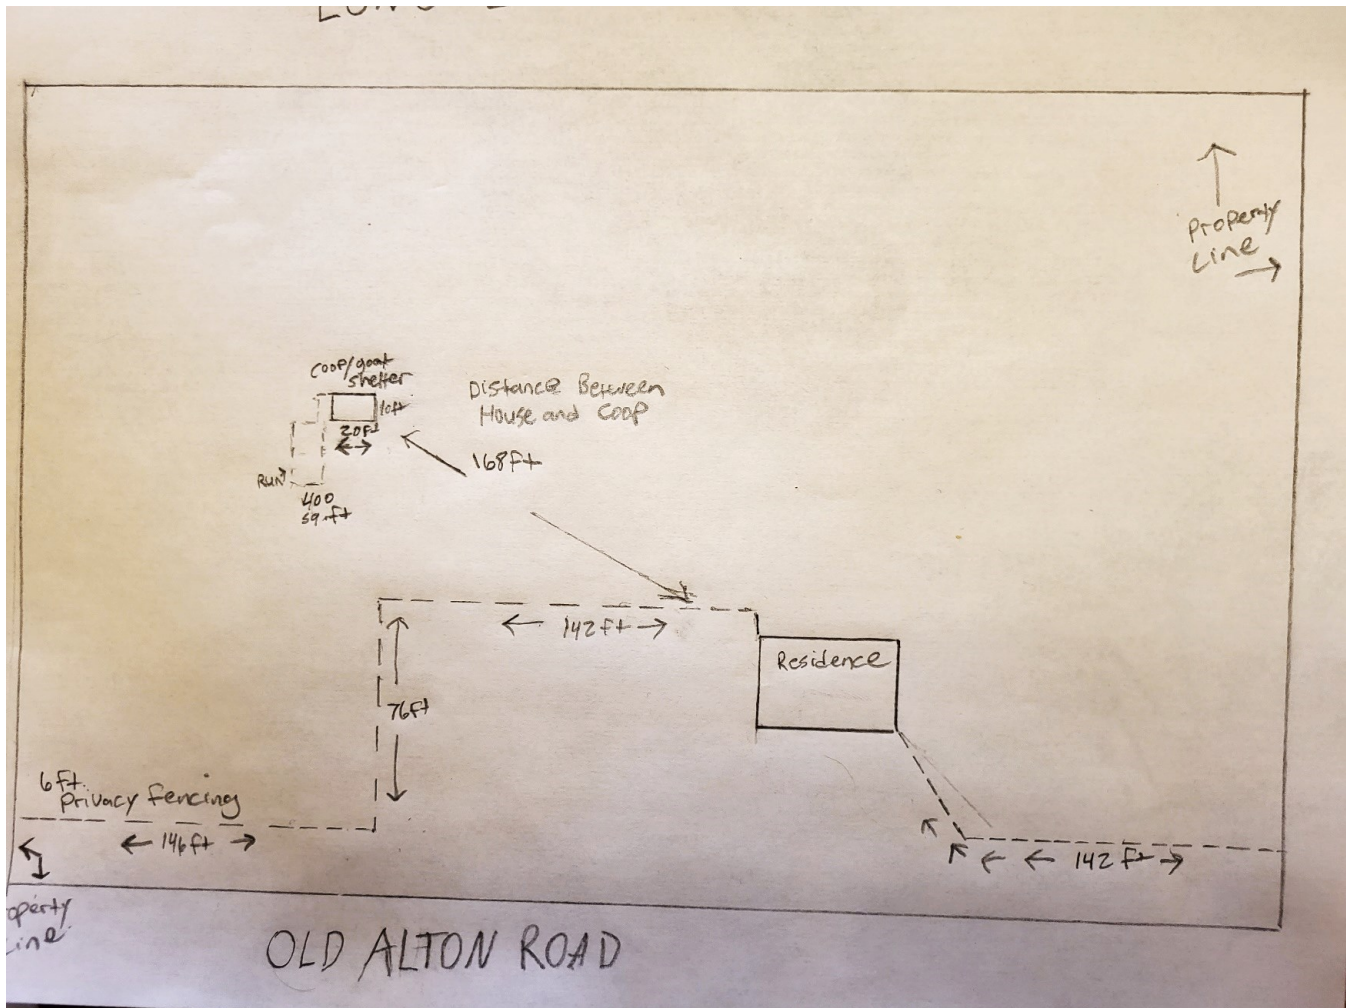 Property
Line
Coop/goat
shelter
10ft
20ft
Distance Between
House and Coop
168ft
RUN
400
sq.ft
142ft
Residence
76ft
6ft.
Privacy fencing
146ft
142 ft
operty
Line
OLD ALTON ROAD